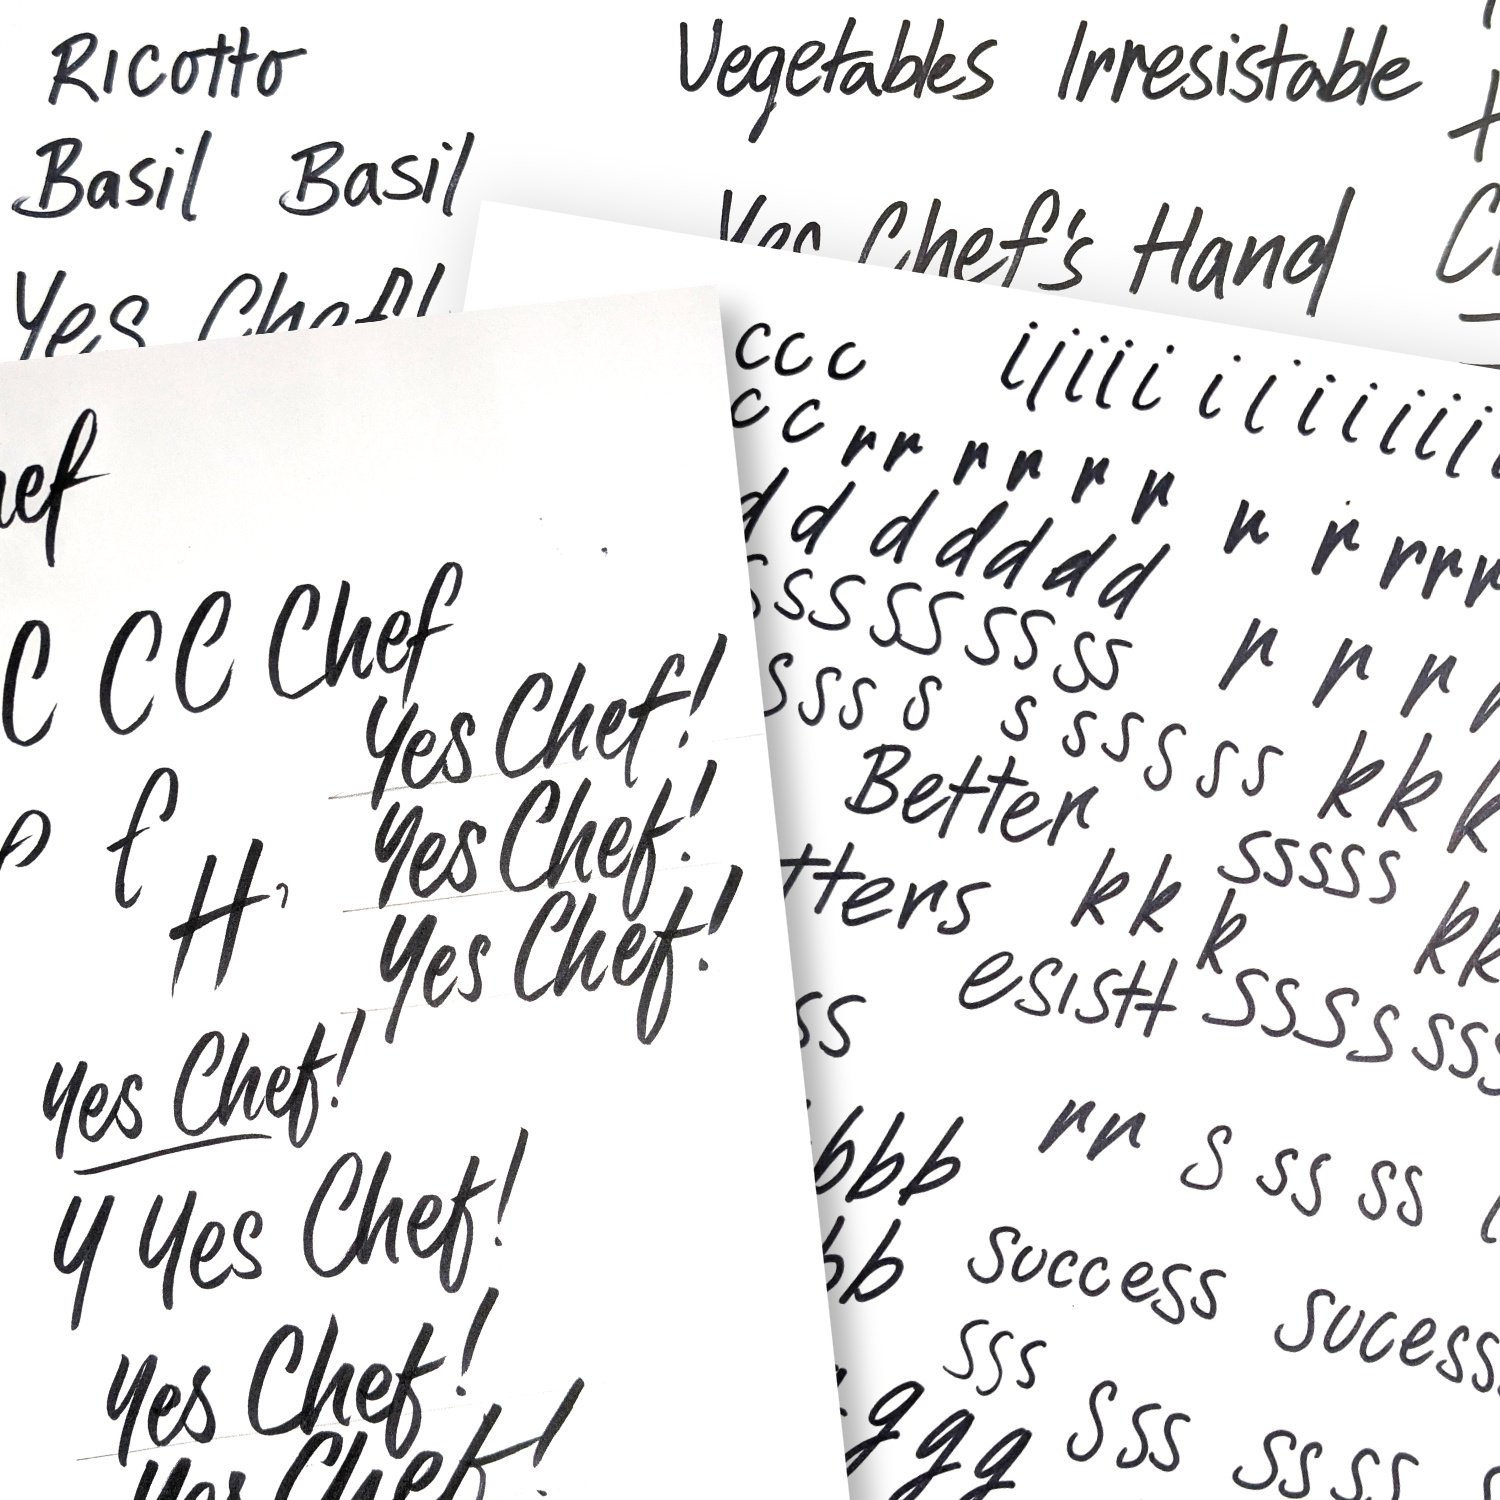 Ricotto
Basil Basil
Yes Chef!
Vegetables Irresistable
Yes Chef's Hand
hef
C C C Chef
Yes Chef!
Yes Chef!
Yes Chef!
f
H
Yes Chef!
y Yes Chef!
Yes Chef!
Yes Chef!
c c c i j i i i i i i i i i i i
c c r r r r r r r r r r r
d d d d d d d
s s s s s s s s s r r r
s s s s s s s s s s s k k k
Better sssss
tters k k k k k
esistt s s s s s s s
ss
b b b r r s s s s s
b b success sucess
s s s
g g g s s s s s s s